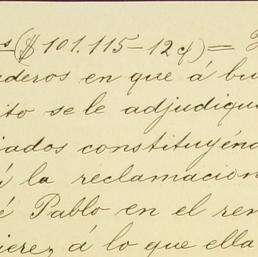 ($ 101.115-12¢) =
en que á bu
ito se le adjudiqu
constituyén
á la reclamacion
é Pablo en el ren
iere, á lo que ella